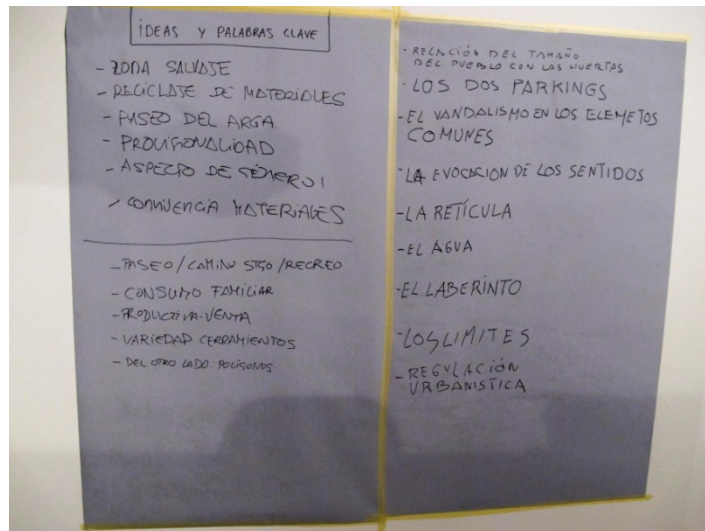 IDEAS Y PALABRAS CLAVE
- ZONA SALVAJE
- RECICLAJE DE MATERIALES
- PASEO DEL ARGA
- PROVISIONALIDAD
- ASPECTO DE GÉNERO!
- CONVIVENCIA MATERIALES
- PASEO / CAMINO STGO / RECREO
- CONSUMO FAMILIAR
- PRODUCTIVA-VENTA
- VARIEDAD CERRAMIENTOS
- DEL OTRO LADO: POLÍGONOS
- RELACIÓN DEL TAMAÑO
DEL PUEBLO CON LAS HUERTAS
- LOS DOS PARKINGS
- EL VANDALISMO EN LOS ELEMETOS
COMUNES
- LA EVOCACION DE LOS SENTIDOS
- LA RETÍCULA
- EL AGUA
- EL LABERINTO
- LOS LIMITES
- REGULACIÓN
URBANISTICA